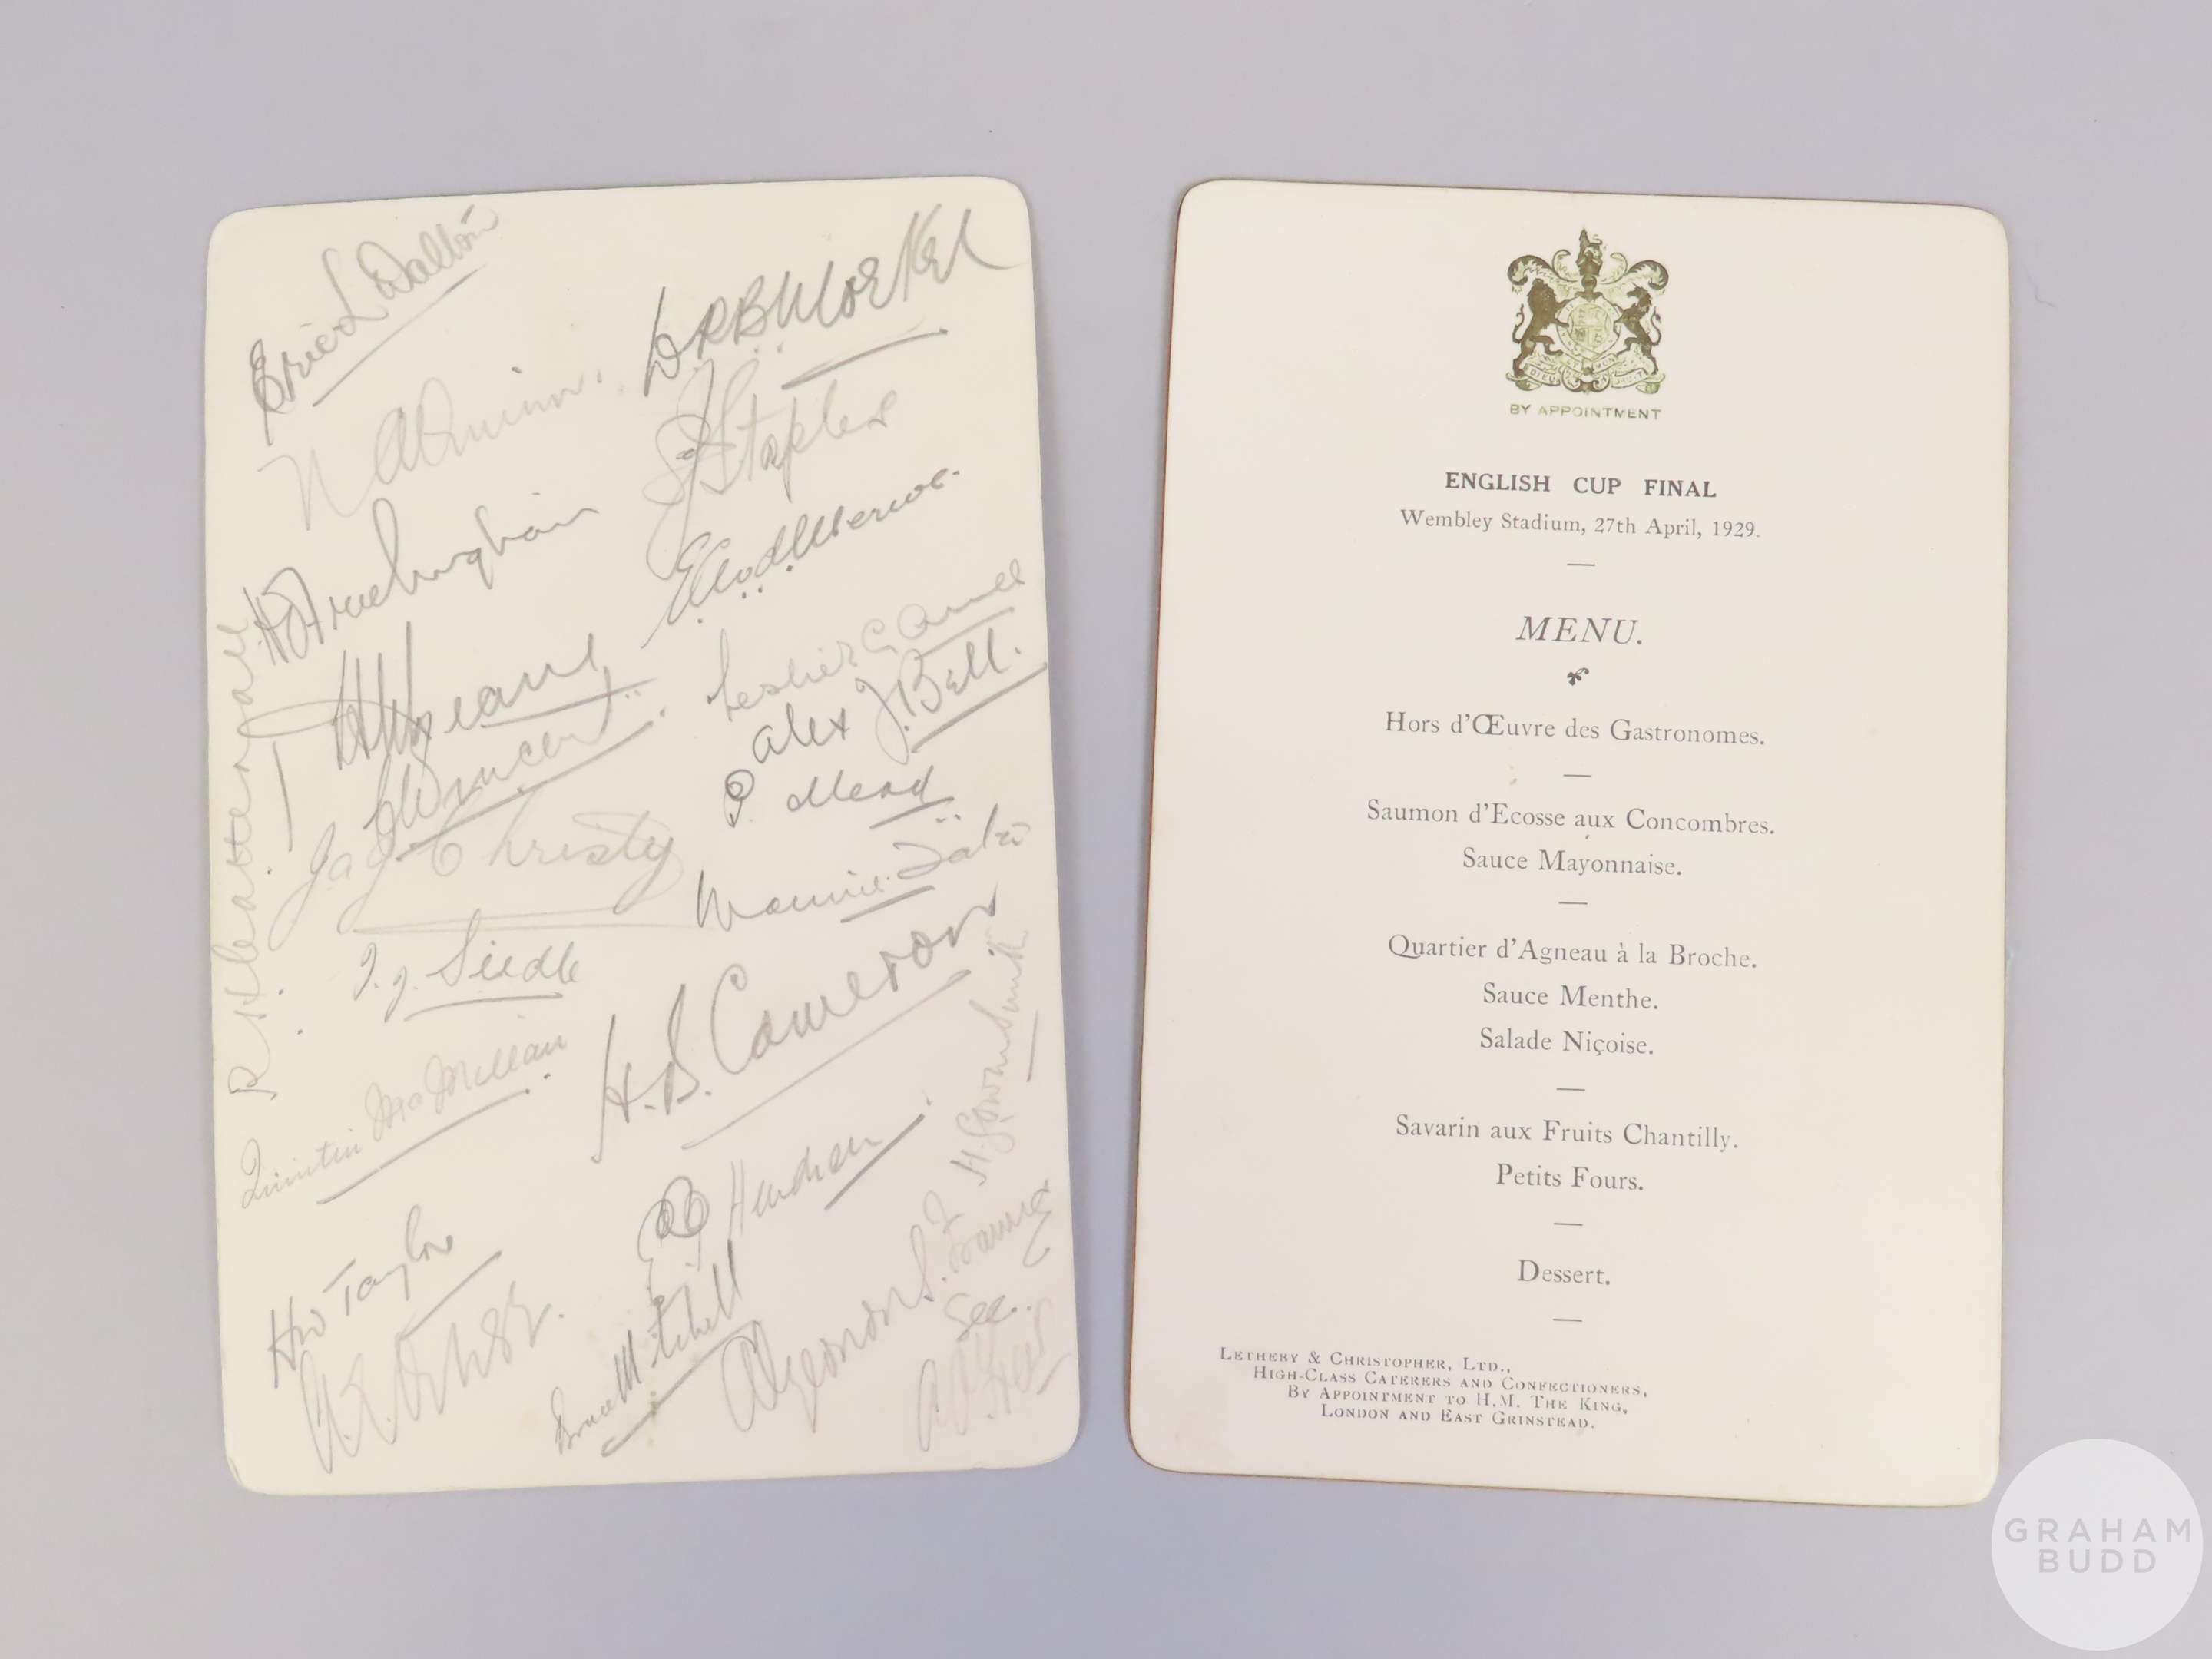 Eric L Dalton
D P B Morkel
N A Quinn.
S J Staples
H G Deane
E A v d Merwe.
Leslie E G Ames
Alex J. Bell.
P. Mead
J A J Christy
Maurice Tate
I. J. Siedle
H. B. Cameron
R H Catterall
Quintin McMillan
E Hendren
H W Taylor
Bruce Mitchell
Algernon S. Frames
Sec..
BY APPOINTMENT
ENGLISH CUP FINAL
Wembley Stadium, 27th April, 1929.
MENU.
Hors d'Œuvre des Gastronomes.
Saumon d'Ecosse aux Concombres.
Sauce Mayonnaise.
Quartier d'Agneau à la Broche.
Sauce Menthe.
Salade Niçoise.
Savarin aux Fruits Chantilly.
Petits Fours.
Dessert.
LETHEBY & CHRISTOPHER, LTD.,
HIGH-CLASS CATERERS AND CONFECTIONERS,
BY APPOINTMENT TO H.M. THE KING,
LONDON AND EAST GRINSTEAD.
GRAHAM
BUDD